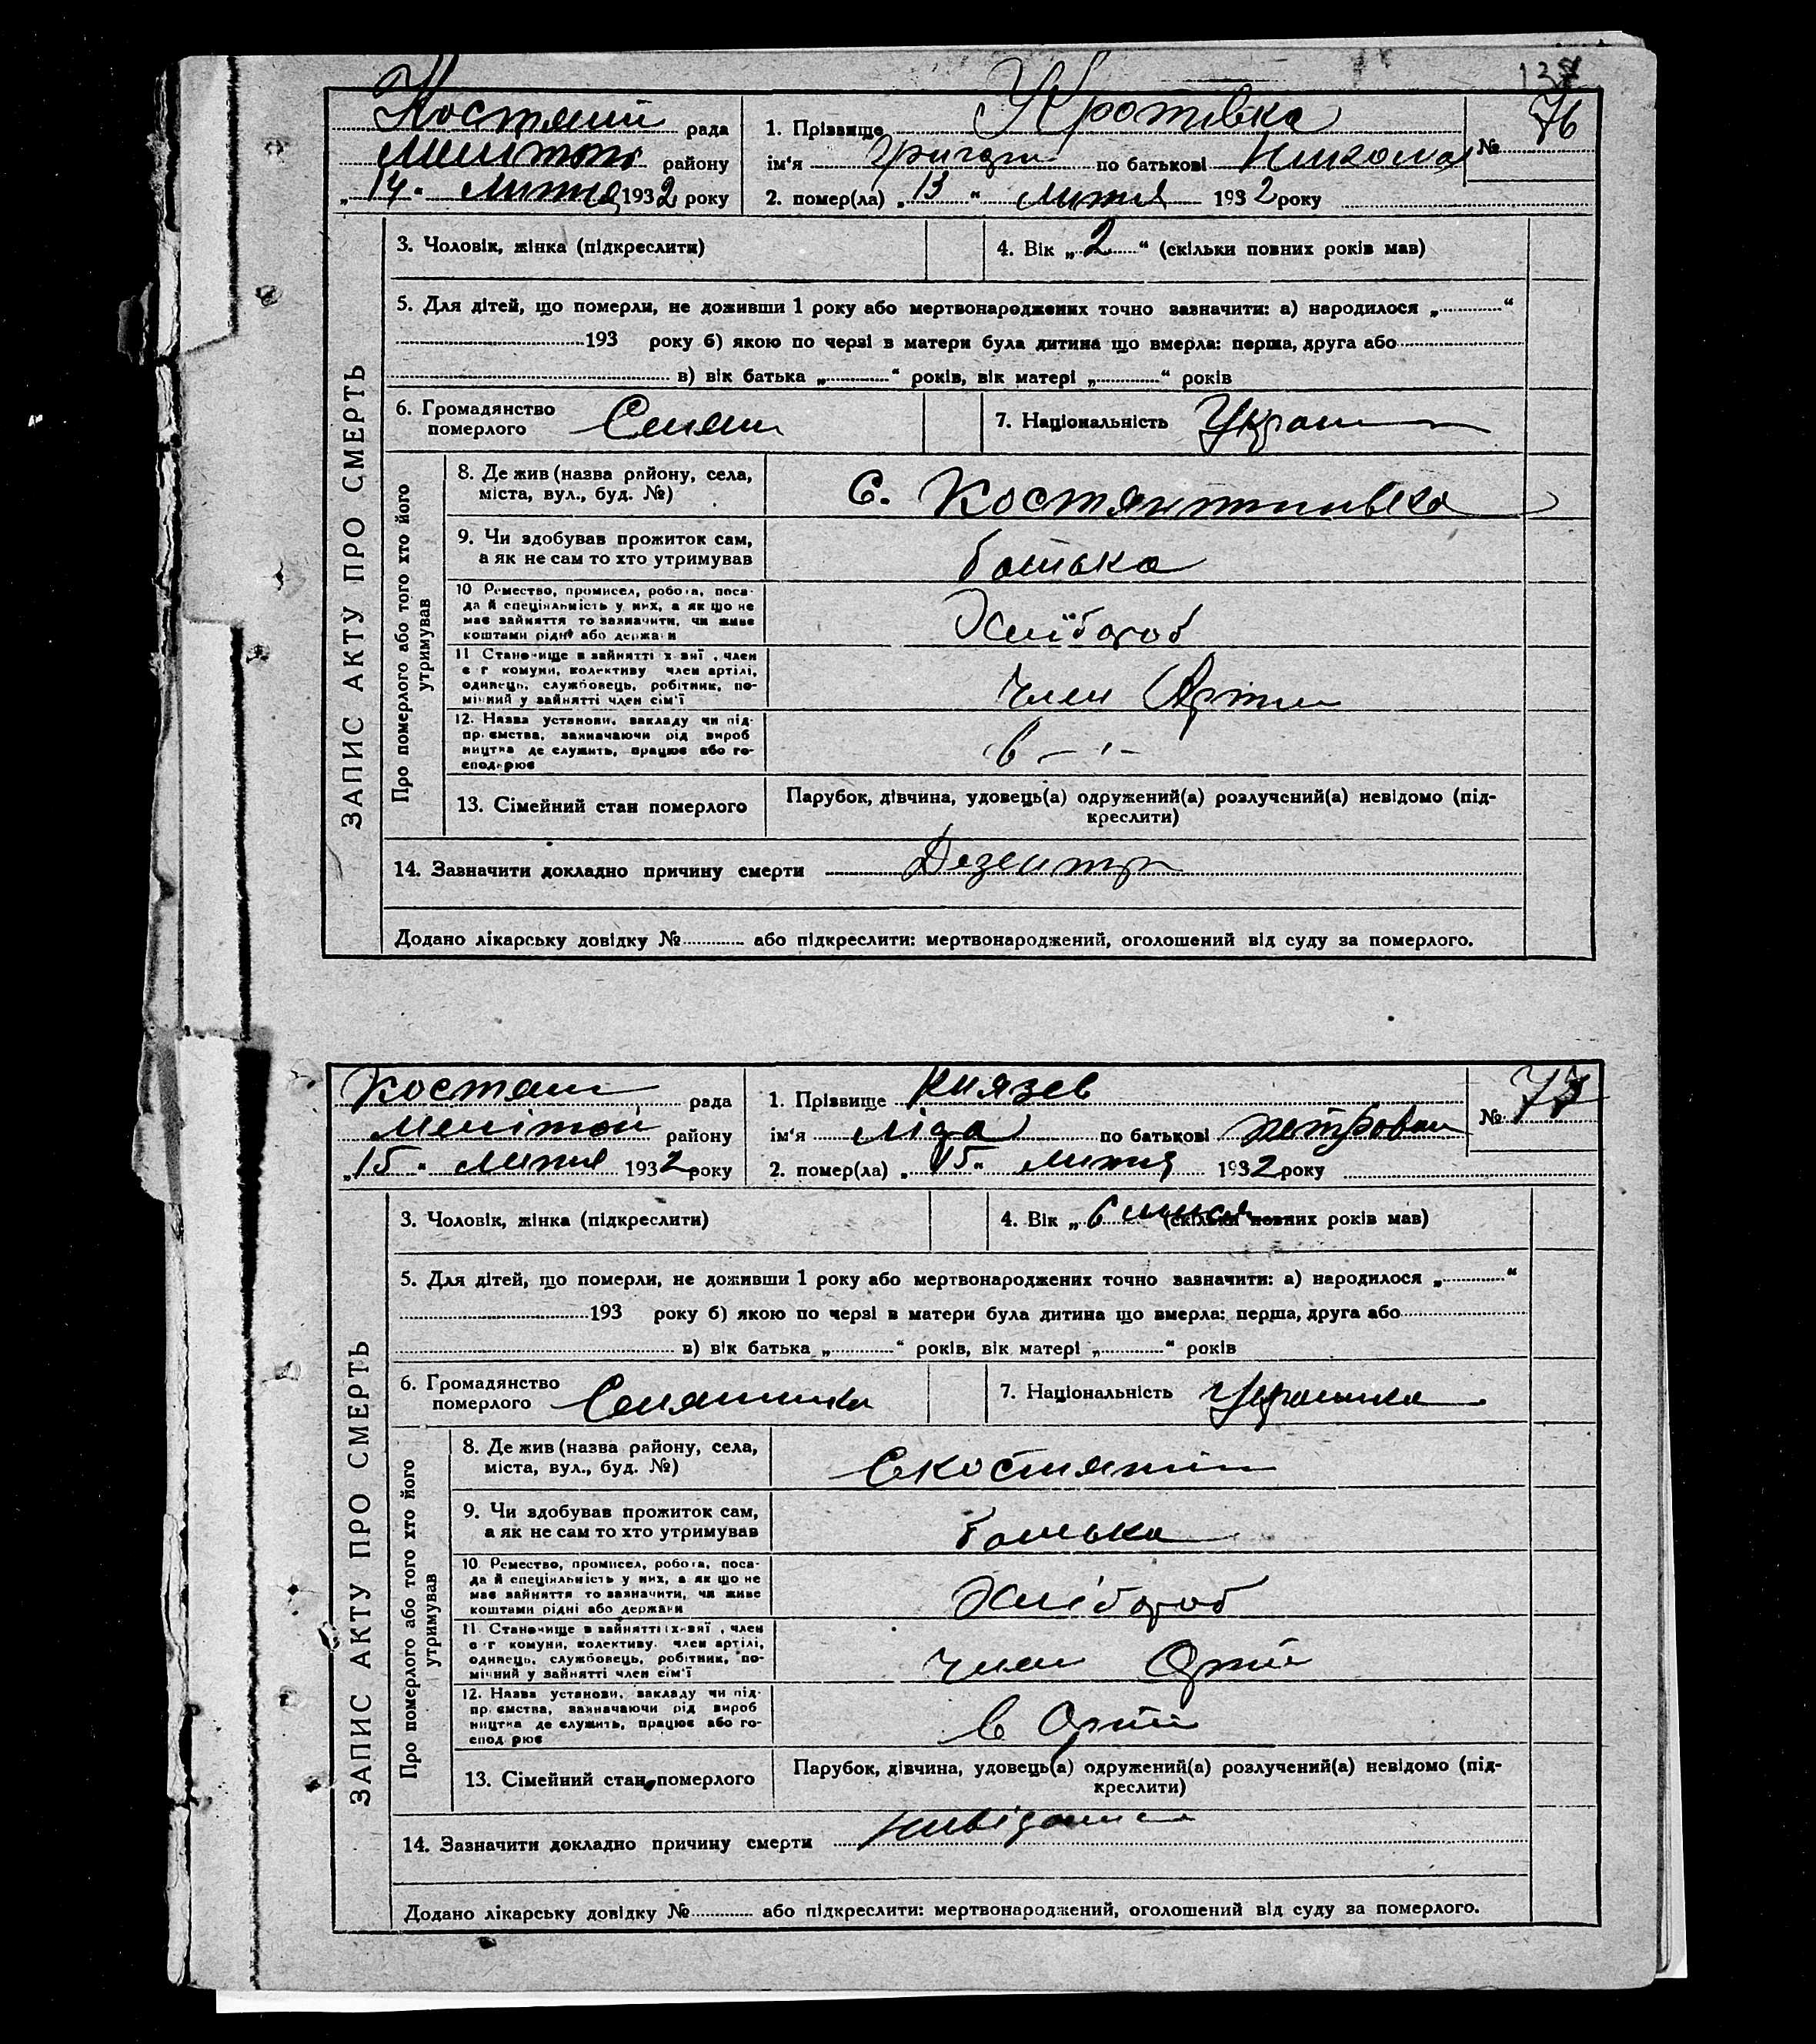 137
Костянти рада
Меліт району
„14“ Липня 1932 року
1. Прізвище Кротівка
ім‘я Григор по батькові Никола
2. помер(ла) „13“ липня 1932 року
№ 76
3. Чоловік, жінка (підкреслити)
4. Вік „2“ (скільки повних років мав)
5. Для дітей, що померли, не доживши 1 року або мертвонароджених точно зазначити: а) народилося „ “
193 року б) якою по черзі в матери була дитина що вмерла: перша, друга або
в) вік батька „ “ років, вік матері „ “ років
6. Громадянство
померлого Селян
7. Національність Україн
ЗАПИС АКТУ ПРО СМЕРТЬ
Про померлого або того хто його
утримував
8. Де жив (назва району, села,
міста, вул., буд. №)
С. Костянтинівка
9. Чи здобував прожиток сам,
а як не сам то хто утримував
батька
10 Ремество, промисел, робота, поса-
да й спеціяльність у них, а як що не
має зайняття то зазначити, чи живе
коштами рідні або держави
Хлібороб
11 Становище в зайнятті х-зяї , член
с г комуни, колективу член артілі,
одинець, службовець, робітник, по-
мічний у зайнятті член сім‘ї
Член Артіл
12. Назва установи, закладу чи під-
пр. ємства, зазначаючи рід вироб
ництва де служить, працює або го-
спод-рює
в –"–
13. Сімейний стан померлого
Парубок, дівчина, удовець(а) одружений(а) розлучений(а) невідомо (під-
креслити)
14. Зазначити докладно причину смерти Дезентр
Додано лікарську довідку № або підкреслити: мертвонароджений, оголошений від суду за померлого.
Костян рада
Меліто району
„15“ липня 1932 року
1. Прізвище Князєв
ім‘я Ліда по батькові Петрован
2. помер(ла) „15“ липня 1932 року
№ 77
3. Чоловік, жінка (підкреслити)
4. Вік „6 (скільки повних років мав)
5. Для дітей, що померли, не доживши 1 року або мертвонароджених точно зазначити: а) народилося „ “
193 року б) якою по черзі в матери була дитина що вмерла: перша, друга або
в) вік батька „ “ років, вік матері „ “ років
6. Громадянство
померлого Селянинка
7. Національність Українка
ЗАПИС АКТУ ПРО СМЕРТЬ
Про померлого або того хто його
утримував
8. Де жив (назва району, села,
міста, вул., буд. №)
С Костянтин
9. Чи здобував прожиток сам,
а як не сам то хто утримував
батька
10. Ремество, промисел, робота, поса-
да й спеціяльність у них, а як що не
має зайняття то зазначити, чи живе
коштами рідні або держави
Хлібороб
11. Становище в зайнятті х-зяї , член
с г комуни, колективу. член артілі,
одинець, службовець, робітник, по-
мічний у зайнятті член сім‘ї
Член Артіл
12. Назва установи, закладу чи під-
пр. ємства, зазначаючи рід вироб
ництва де служить, працює або го-
спод рює
в Артіл
13. Сімейний стан померлого
Парубок, дівчина, удовець(а) одружений(а) розлучений(а) невідомо (під-
креслити)
14. Зазначити докладно причину смерти невідомо
Додано лікарську довідку № або підкреслити: мертвонароджений, оголошений від суду за померлого.